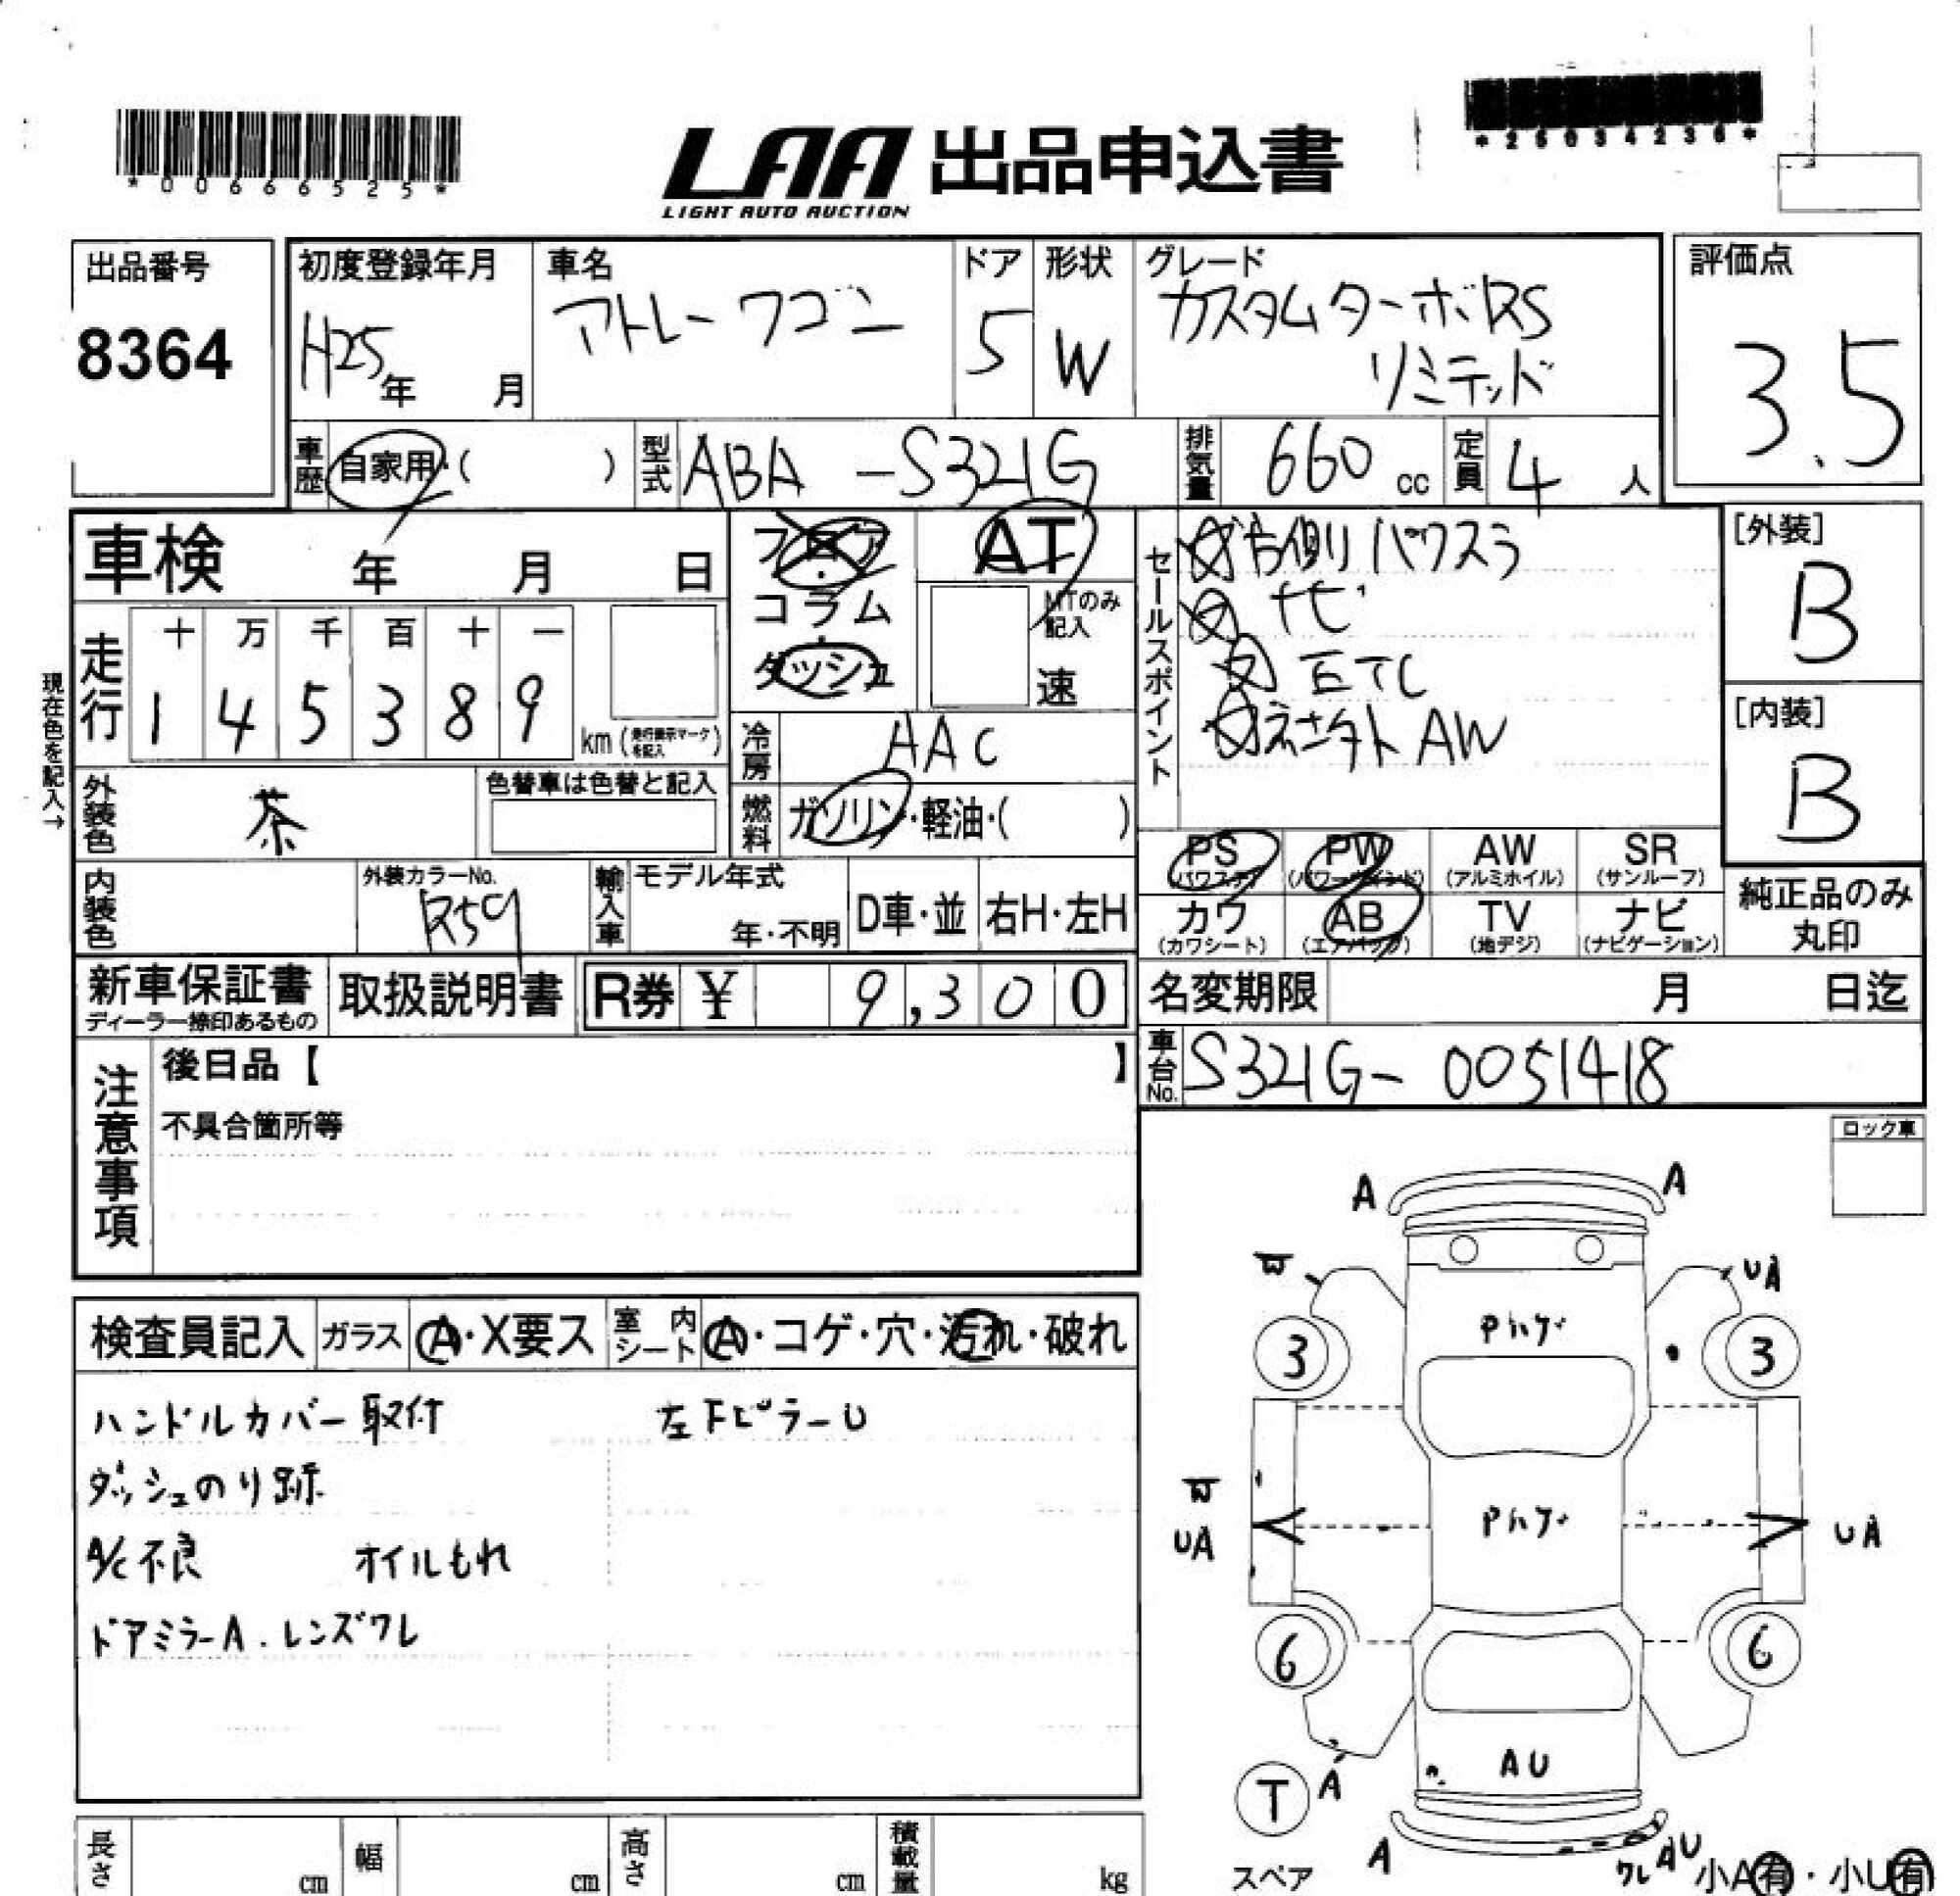 *00666525*
*25034236*
LAA 出品申込書
LIGHT AUTO AUCTION
出品番号
8364
初度登録年月
H25年 月
車名
アトレーワゴン
ドア
5
形状
W
グレード
カスタムターボRS
リミテッド
評価点
3.5
車歴 自家用・( )
型式 ABA-S321G
排気量 660 cc
定員 4 人
車検 年 月 日
フロア・
コラム・
ダッシュ
AT
MTのみ
記入
速
セールスポイント
右側パワスラ
ナビ
ETC
AW
[外装]
B
[内装]
B
現在色を記入→
走行 十 万 千 百 十 一
1 4 5 3 8 9 km (走行表示マークを記入)
冷房 AAC
燃料 ガソリン・軽油・( )
外装色 茶
色替車は色替と記入
内装色
外装カラーNo.
R59
輸入車
モデル年式
年・不明
D車・並
右H・左H
PS (パワステ)
PW (パワーウィンド)
AW (アルミホイル)
SR (サンルーフ)
カワ (カワシート)
AB (エアバッグ)
TV (地デジ)
ナビ (ナビゲーション)
純正品のみ
丸印
新車保証書
ディーラー捺印あるもの
取扱説明書
R券 ¥ 9,300
名変期限 月 日迄
車台No. S321G-0051418
注意事項
後日品【 】
不具合箇所等
ロック車
検査員記入 ガラス A・X要ス 室内シート A・コゲ・穴・汚れ・破れ
ハンドルカバー取付 左FピラーU
ダッシュのり跡
A/C不良 オイルもれ
ドアミラーA.レンズワレ
A A
W UA
Pハゲ
3 3
W
UA
Pハゲ
UA
6 6
AU
T A
スペア
A ワレ AU
小A有・小U有
長さ cm 幅 cm 高さ cm 積載量 kg